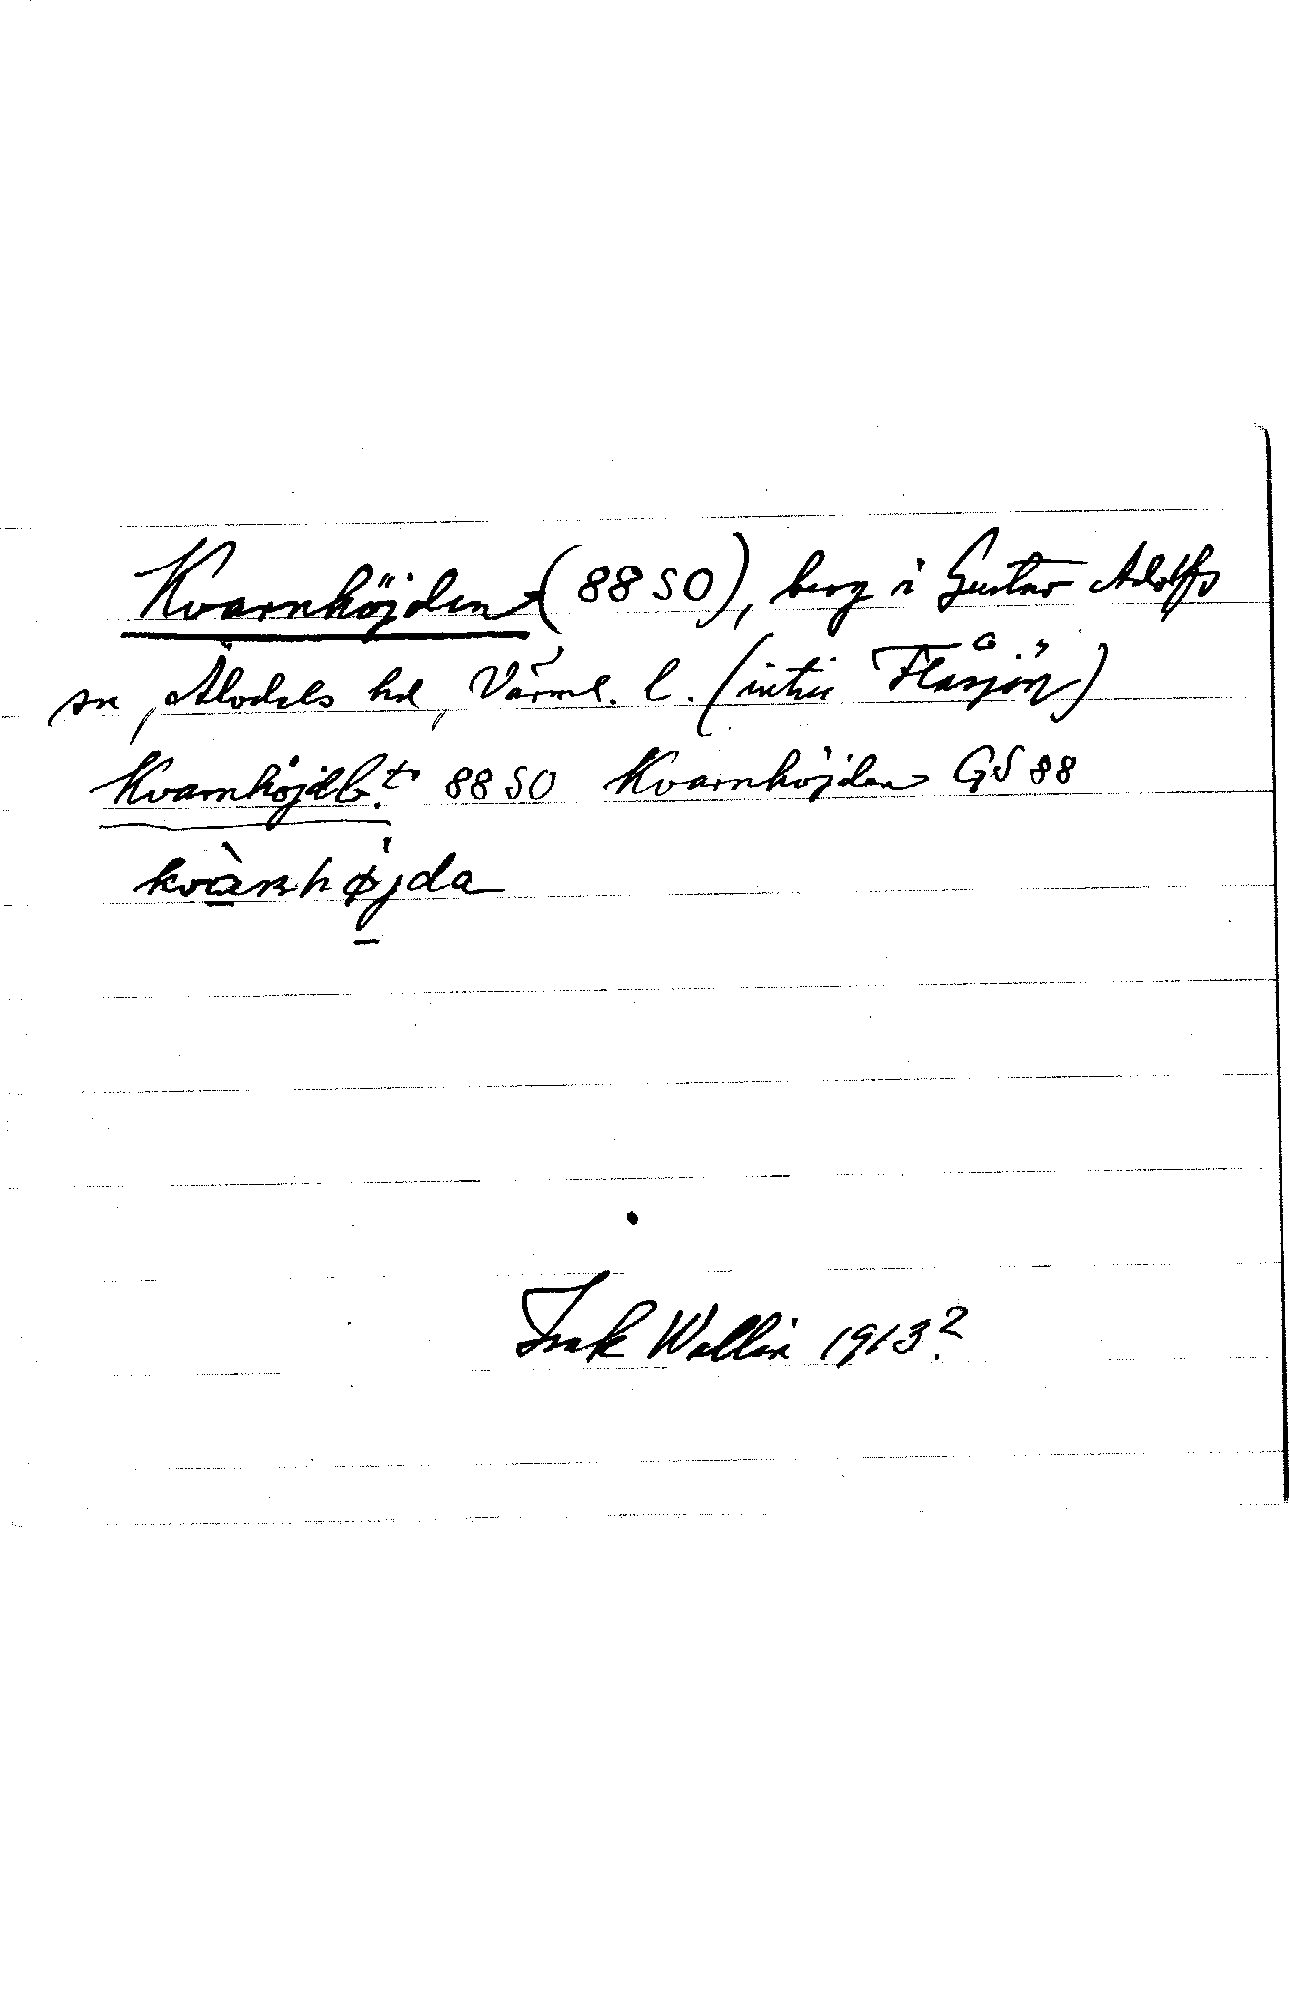 Kvarnhöjden (88 SO), berg i Gustav Adolfs
sn, Älvdals hd, Värml. l. (intill Flåsjön)
Kvarnhöjdb.t 88 SO Kvarnhöjden GS 88
kvànhø̀jda
Wallin 1913?